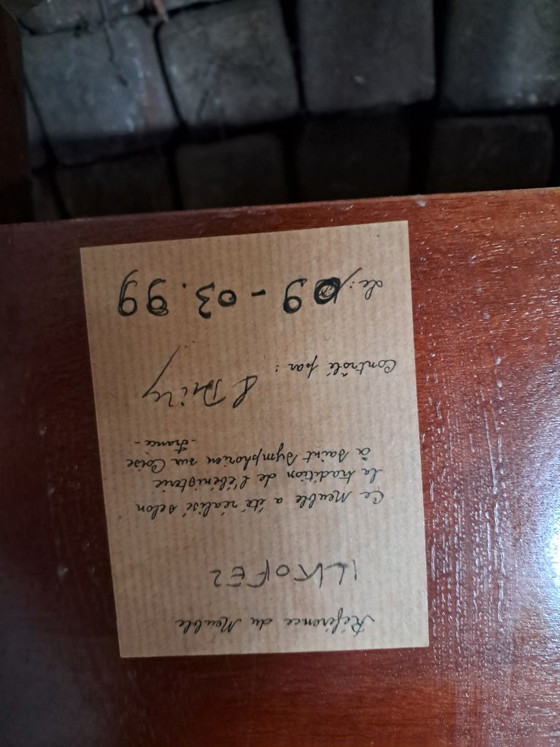 Référence du Meuble
Ce Meuble a été réalisé selon
la tradition de l'ébénisterie
à Saint Symphorien sur Coise
- France -
Contrôlé par :
le : 09 - 03.99